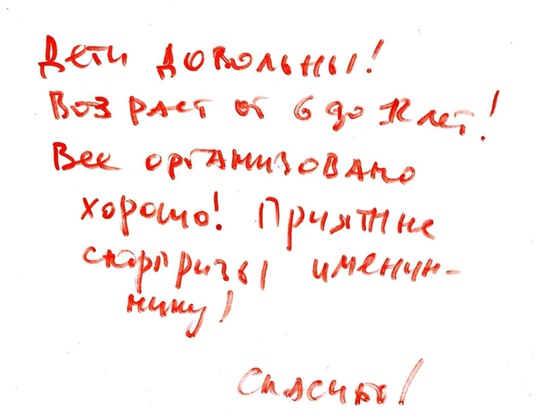 Дети довольны!
Возраст от 6 до 12 лет!
Все организовано
хорошо! Приятные
сюрпризы именин-
нику!
Спасибо!